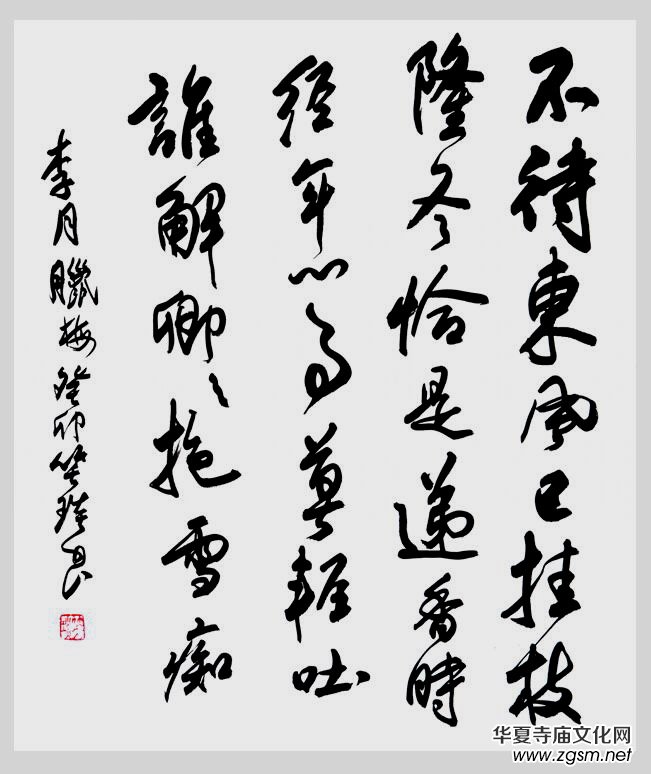 不待東風已挂枝
隆冬恰是遞香時
經年心事莫輕吐
誰解卿卿抱雪痴
李月臘梅癸卯笑琰書
华夏寺庙文化网
www.zgsm.net